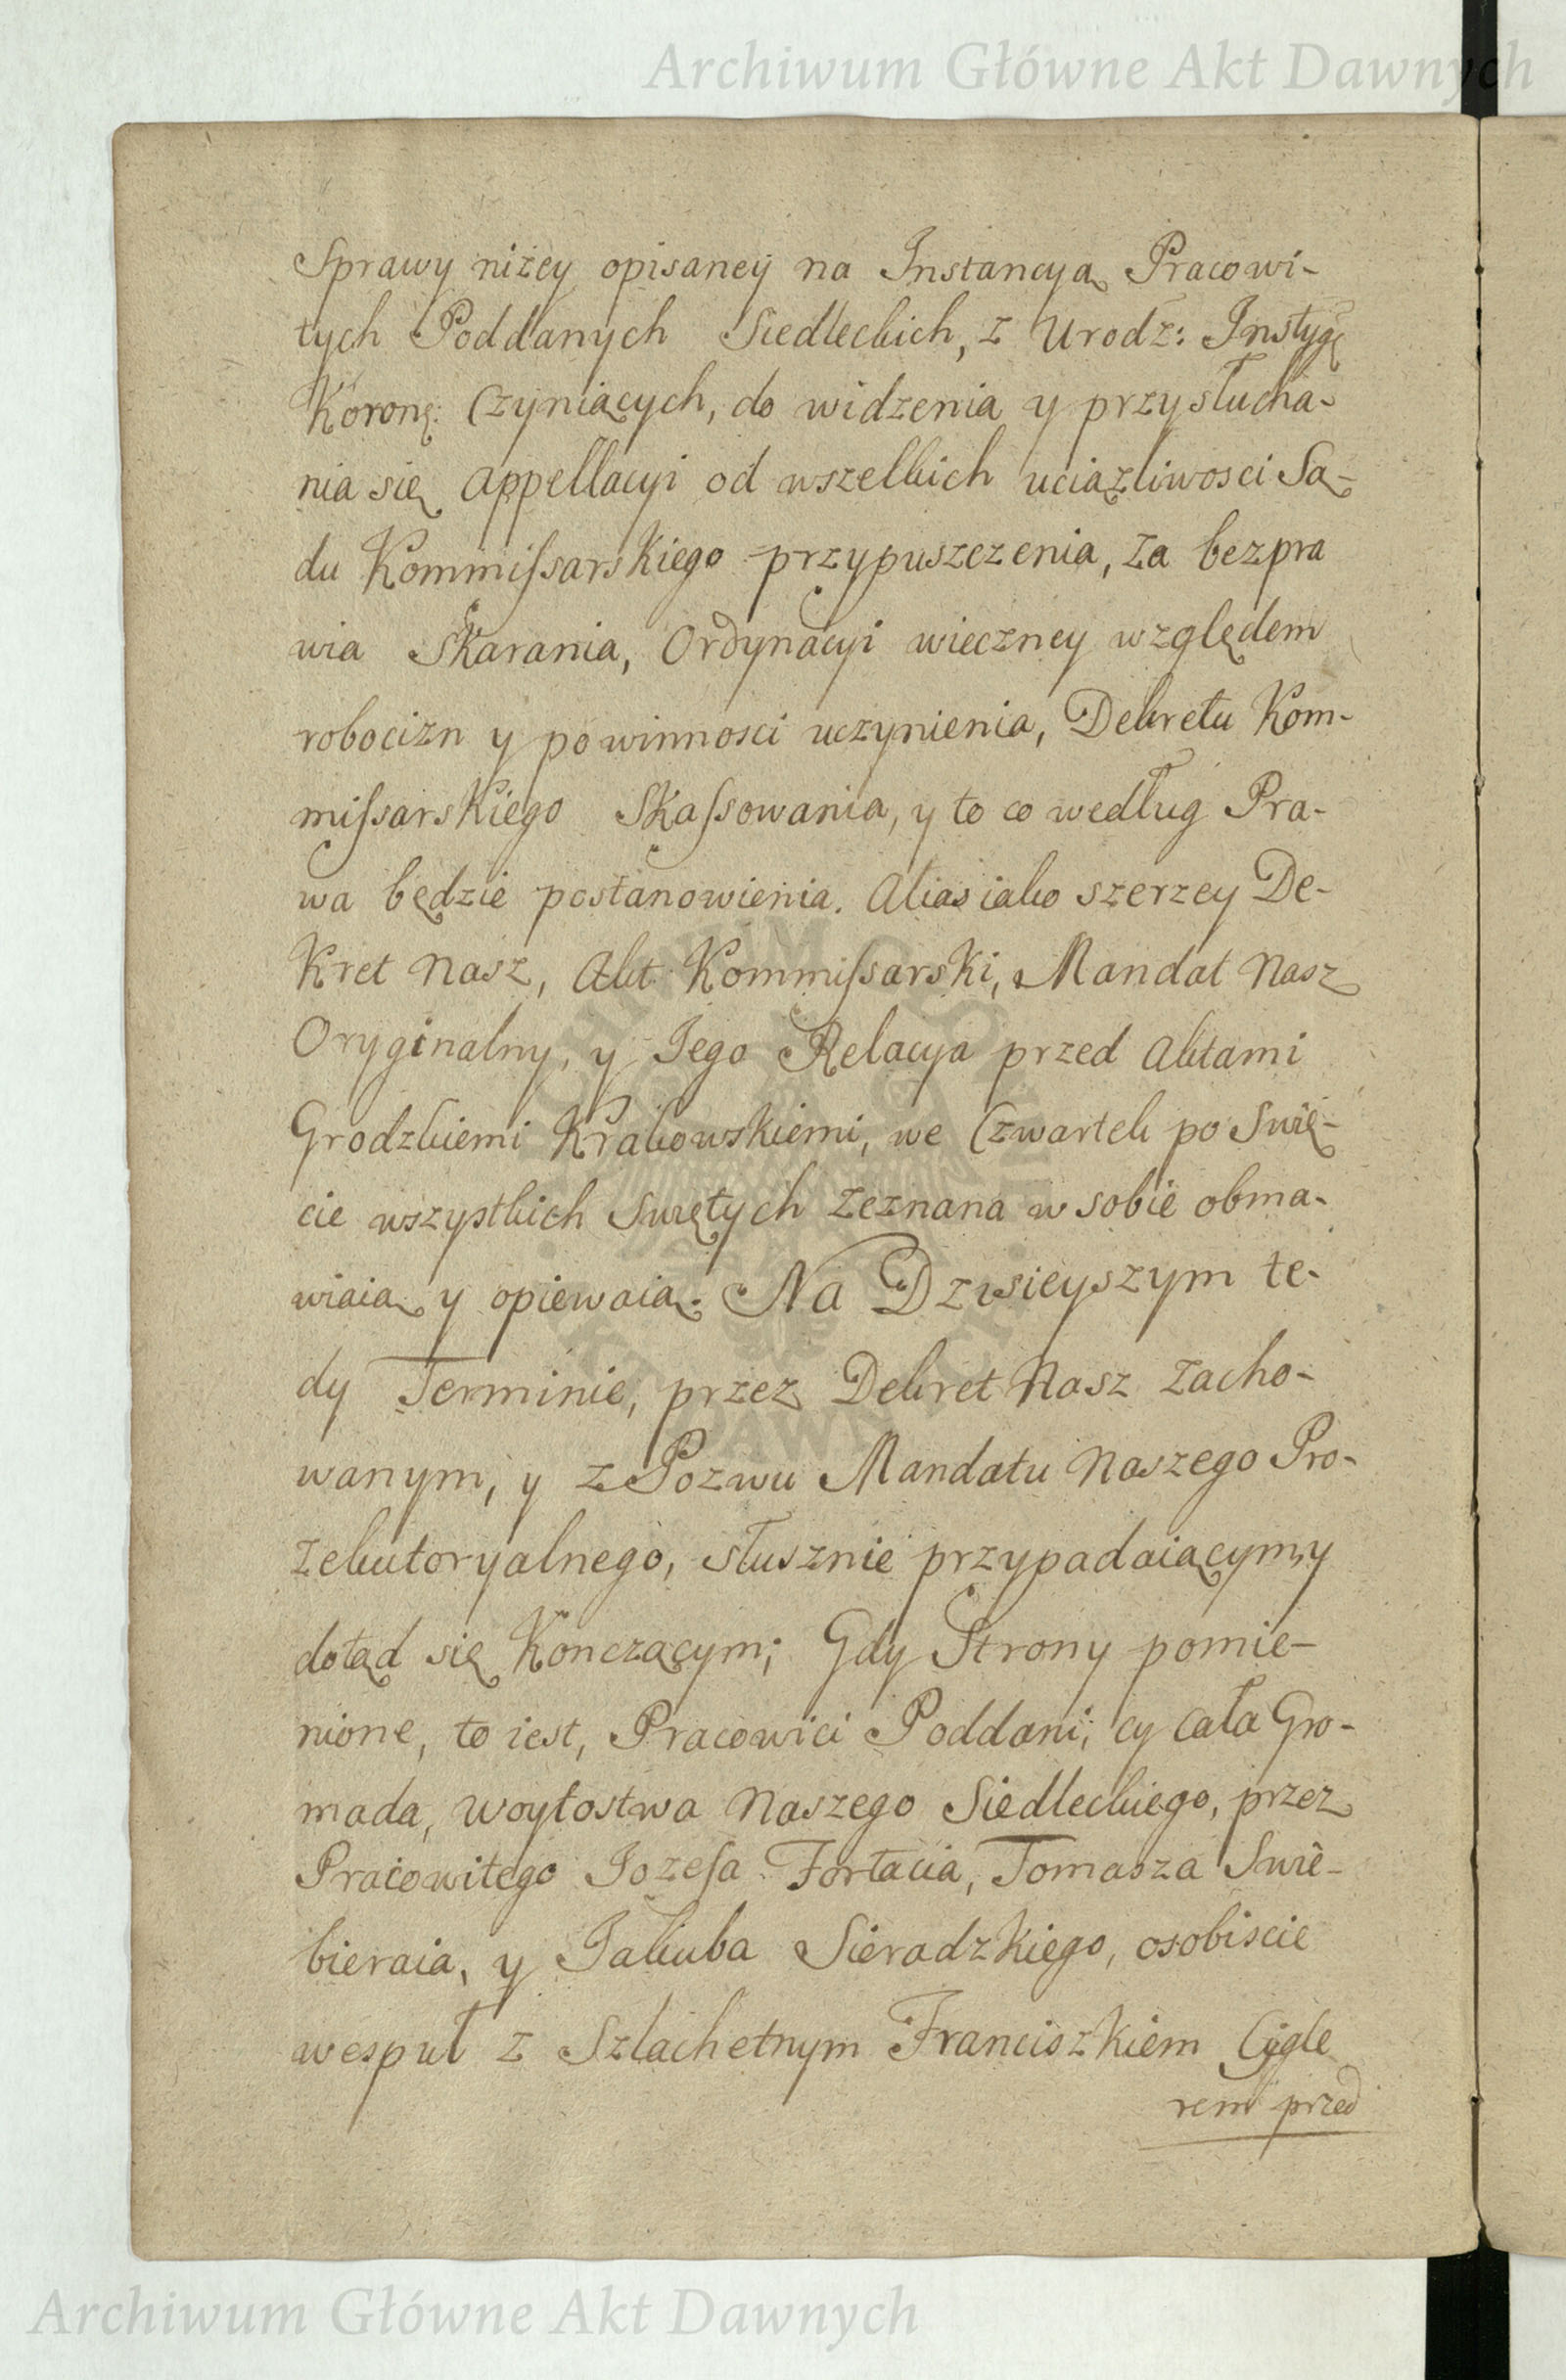 Archiwum Główne Akt Dawnych
Sprawy niżey opisaney na Instancyą Pracowi-
tych Poddanych Siedleckich, z Urodz: Instyg
Koron: Czyniących, do widzenia y przysłucha-
nia się Appellacyi od wszelkich uciążliwosci Są-
du Kommissarskiego przypuszczenia, za bezpra
wia Skarania, Ordynacyi wieczney względem
robocizn y powinnosci uczynienia, Dekretu Kom-
missarskiego Skassowania, y to co według Pra-
wa będzie postanowienia. Alias iako szerzey De-
kret Nasz, Akt Kommissarski, Mandat Nasz
Oryginalny, y Iego Relacya przed Aktami
Grodzkiemi Krakowskiemi, we Czwartek po Swię-
cie wszystkich Swiętych zeznana w sobie obma-
wiaią y opiewaią. Na Dzisieyszym te-
dy Terminie, przez Dekret Nasz zacho-
wanym, y z Pozwu Mandatu Naszego Pro-
zekutoryalnego, słusznie przypadaiącym, y
dotąd się Konczącym; Gdy Strony pomie-
nione, to iest, Pracowici Poddani, cy cała Gro-
mada, Woytostwa Naszego Siedleckiego, przez
Pracowitego Iozefa Fortacia, Tomasza Swie-
bieraia, y Iakuba Sieradzkiego, osobiscie
wespuł z Szlachetnym Franciszkiem Cygle
rem przed
Archiwum Główne Akt Dawnych